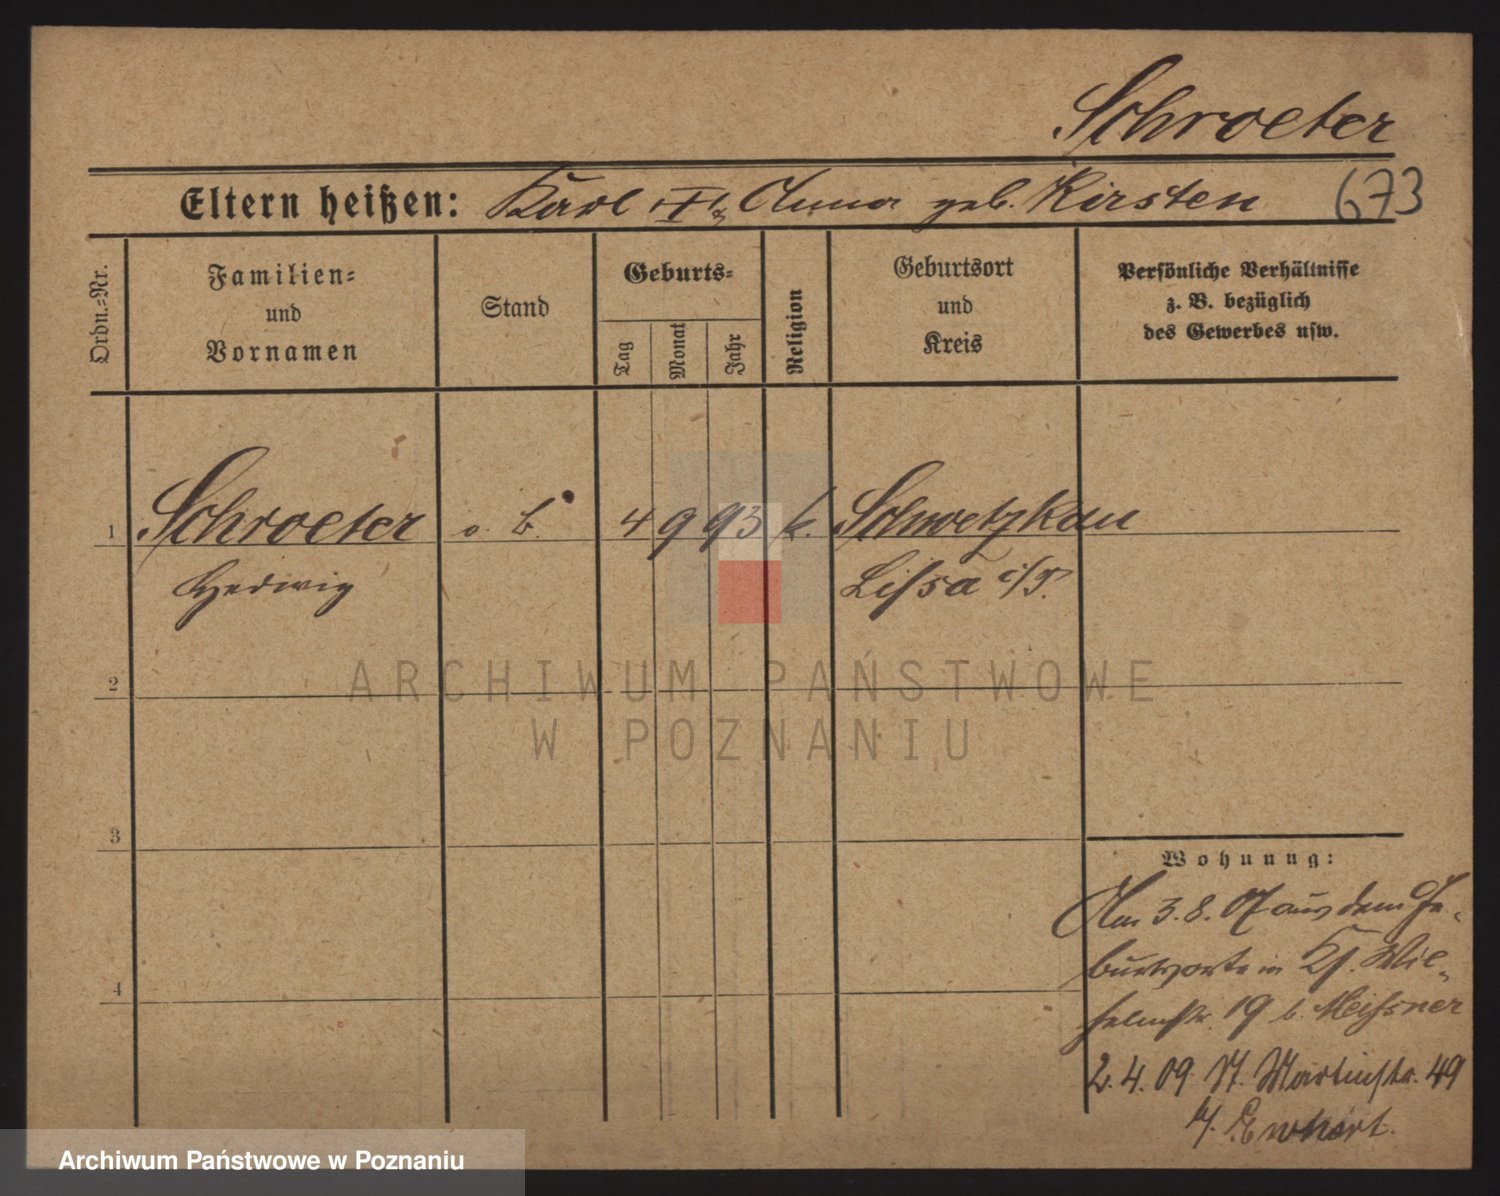 Schroeter
Eltern heißen: Karl & Anna geb. Kirsten 673
Ordn.=Nr.
Familien=
und
Vornamen
Stand
Geburts=
Tag
Monat
Jahr
Religion
Geburtsort
und
Kreis
Persönliche Verhältnisse
z. B. bezüglich
des Gewerbes usw.
1 Schroeter o. B. 4 9 93 k. Schwetzkau
Hedwig Lissa i/P.
ARCHIWUM PAŃSTWOWE
2
W POZNANIU
3
Wohnung:
Am 3.8.07 aus dem Ge-
4
burtsorte in Wil-
helmstr. 19 b. Meissner
2.4.09 St. Martinstr. 49
Archiwum Państwowe w Poznaniu